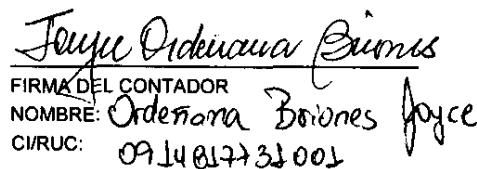 Joyce Ordeñana Briones
FIRMA DEL CONTADOR
NOMBRE: Ordeñana Briones Joyce
CI/RUC: 0914817731001